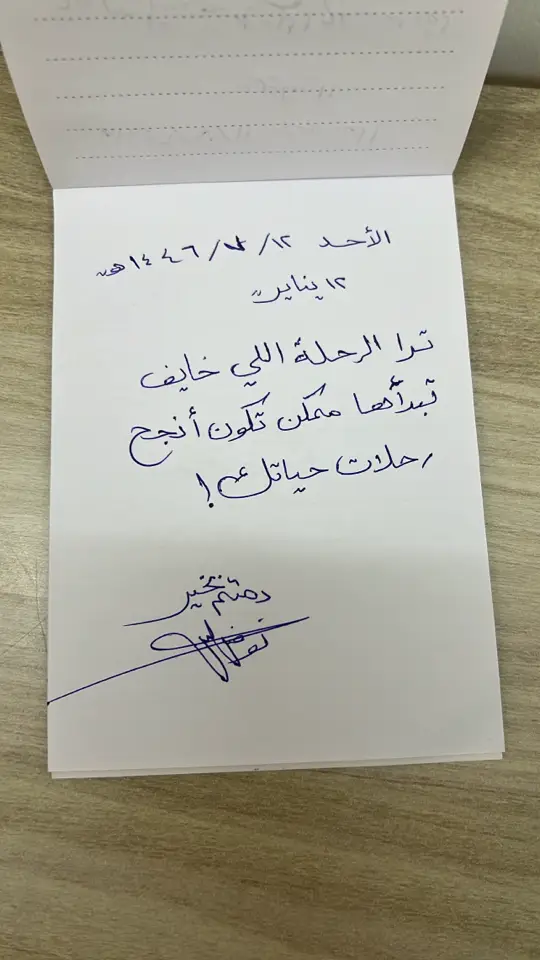 الأحد ١٢/٧/١٤٤٦هـ
١٢ يناير
ترا الرحلة اللي خايف
تبدأها ممكن تكون أنجح
رحلات حياتك!
دمتم بخير